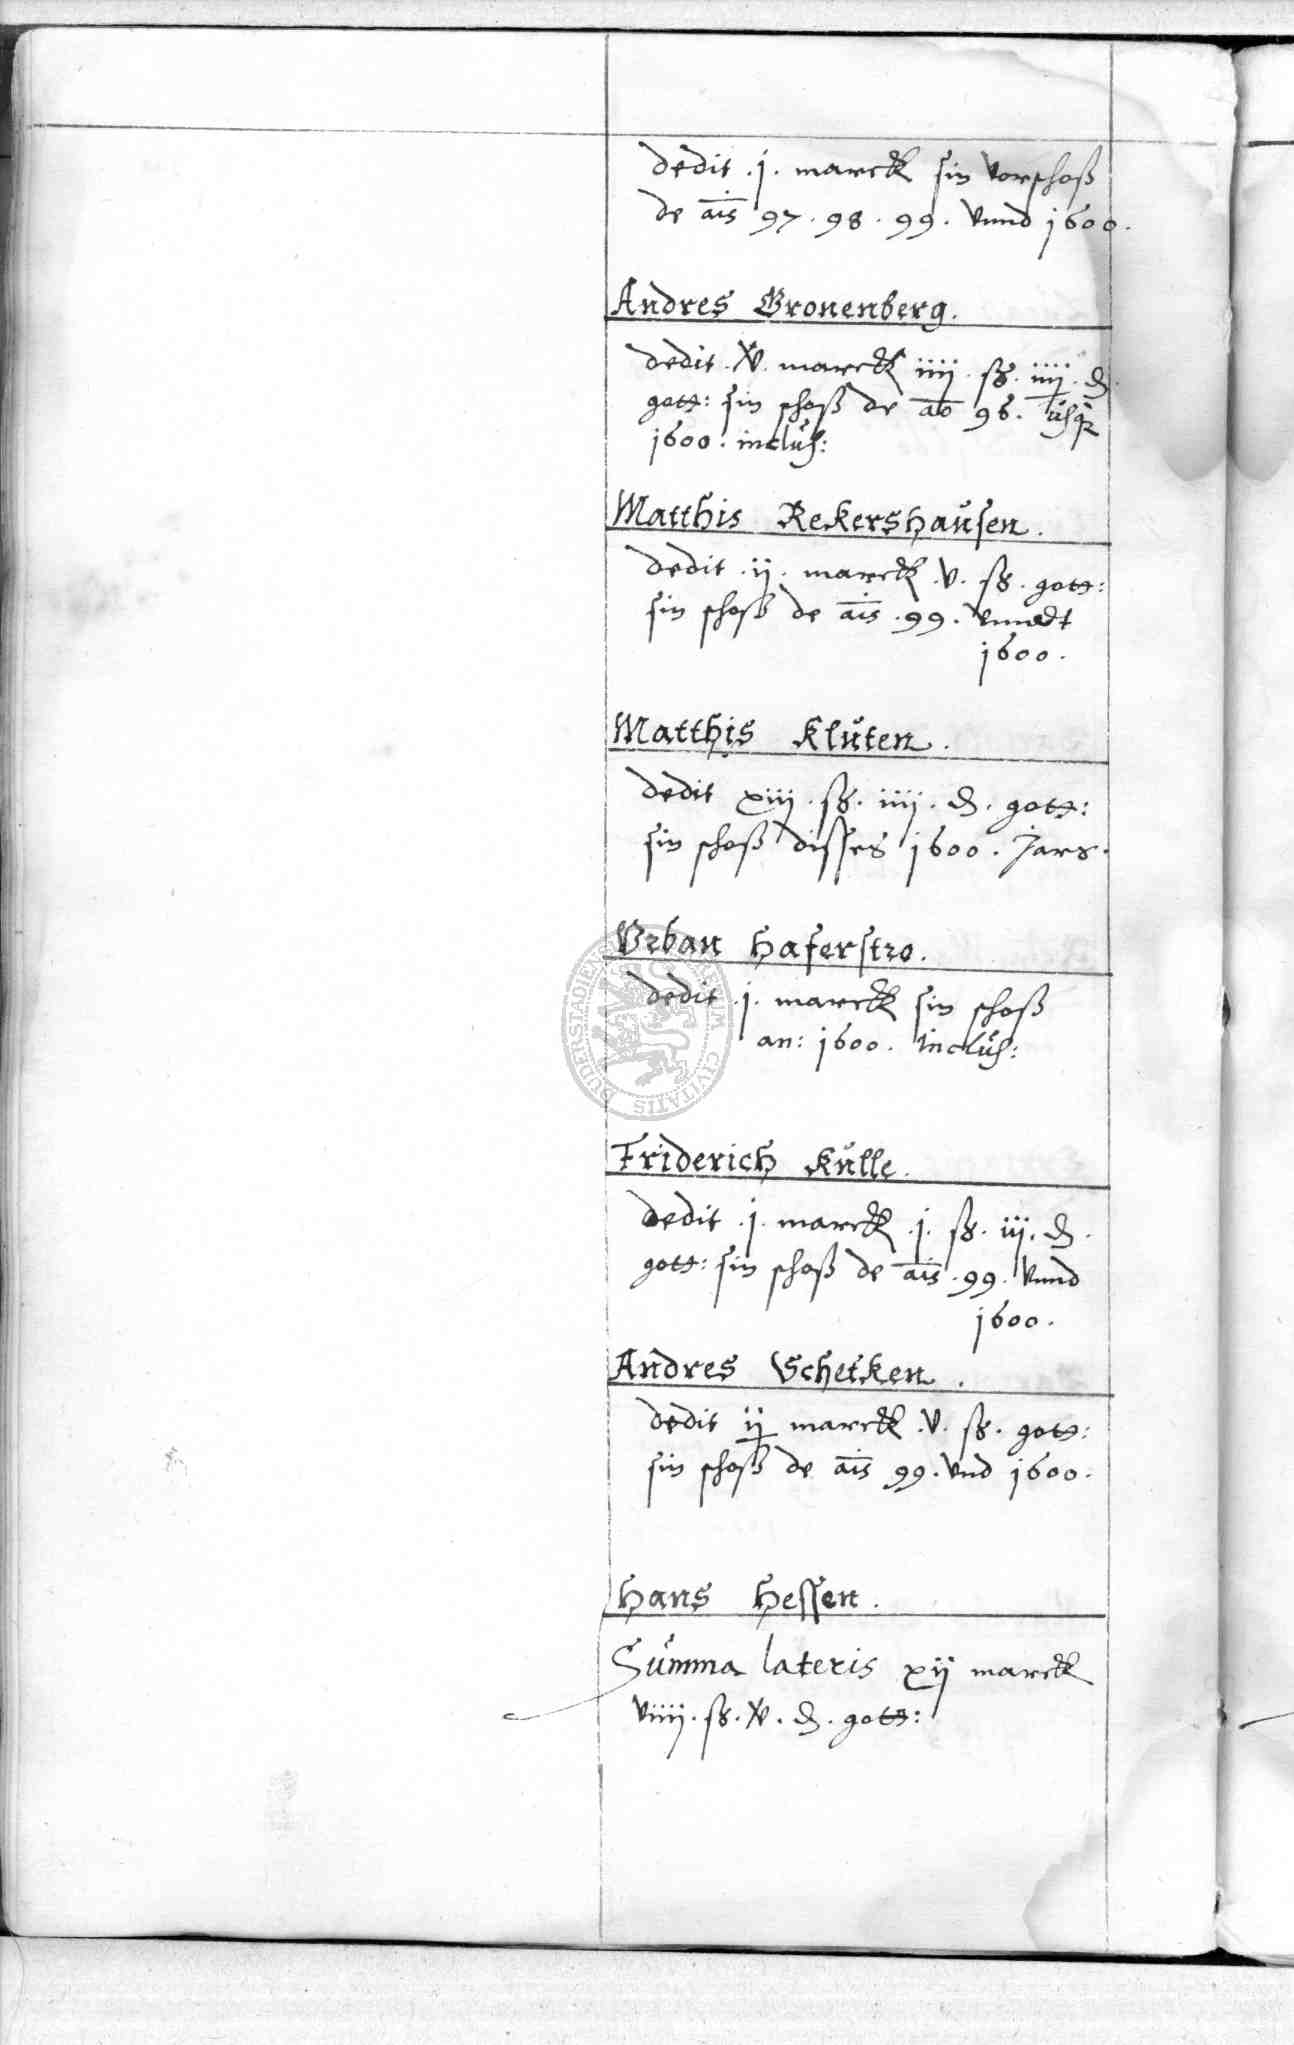 dedit .j. marck sin vorschoß
de aīs 97 . 98 . 99 . vnnd 1600 .
Andres Gronenberg .
dedit . xv . marck iiij . ß . iiij . ₰ .
gott: sin schoß de ao 96 . usq
1600 . inclus:
Matthis Rekershausen .
dedit . ij . marck . v . ß . gott:
sin schoß de aīs . 99 . vnnedt
1600 .
Matthis Kluten .
dedit xiij . ß . iiij . ₰ . gott:
sin schoß disses 1600 . Jars .
Vrban Haferstro .
dedit . j . marck sin schoß
an: 1600 . inclus:
Friderich Kulle .
dedit . j . marck . j . ß . iij . ₰ .
gott: sin schoß de aīs . 99 . vnnd
1600 .
Andres Schetken .
dedit ij marck . v . ß . gott:
sin schoß de aīs 99 . vnd 1600 .
Hans Hessen .
Summa lateris xij marck
viiij . ß . xv . ₰ . gott:
CIVITATIS